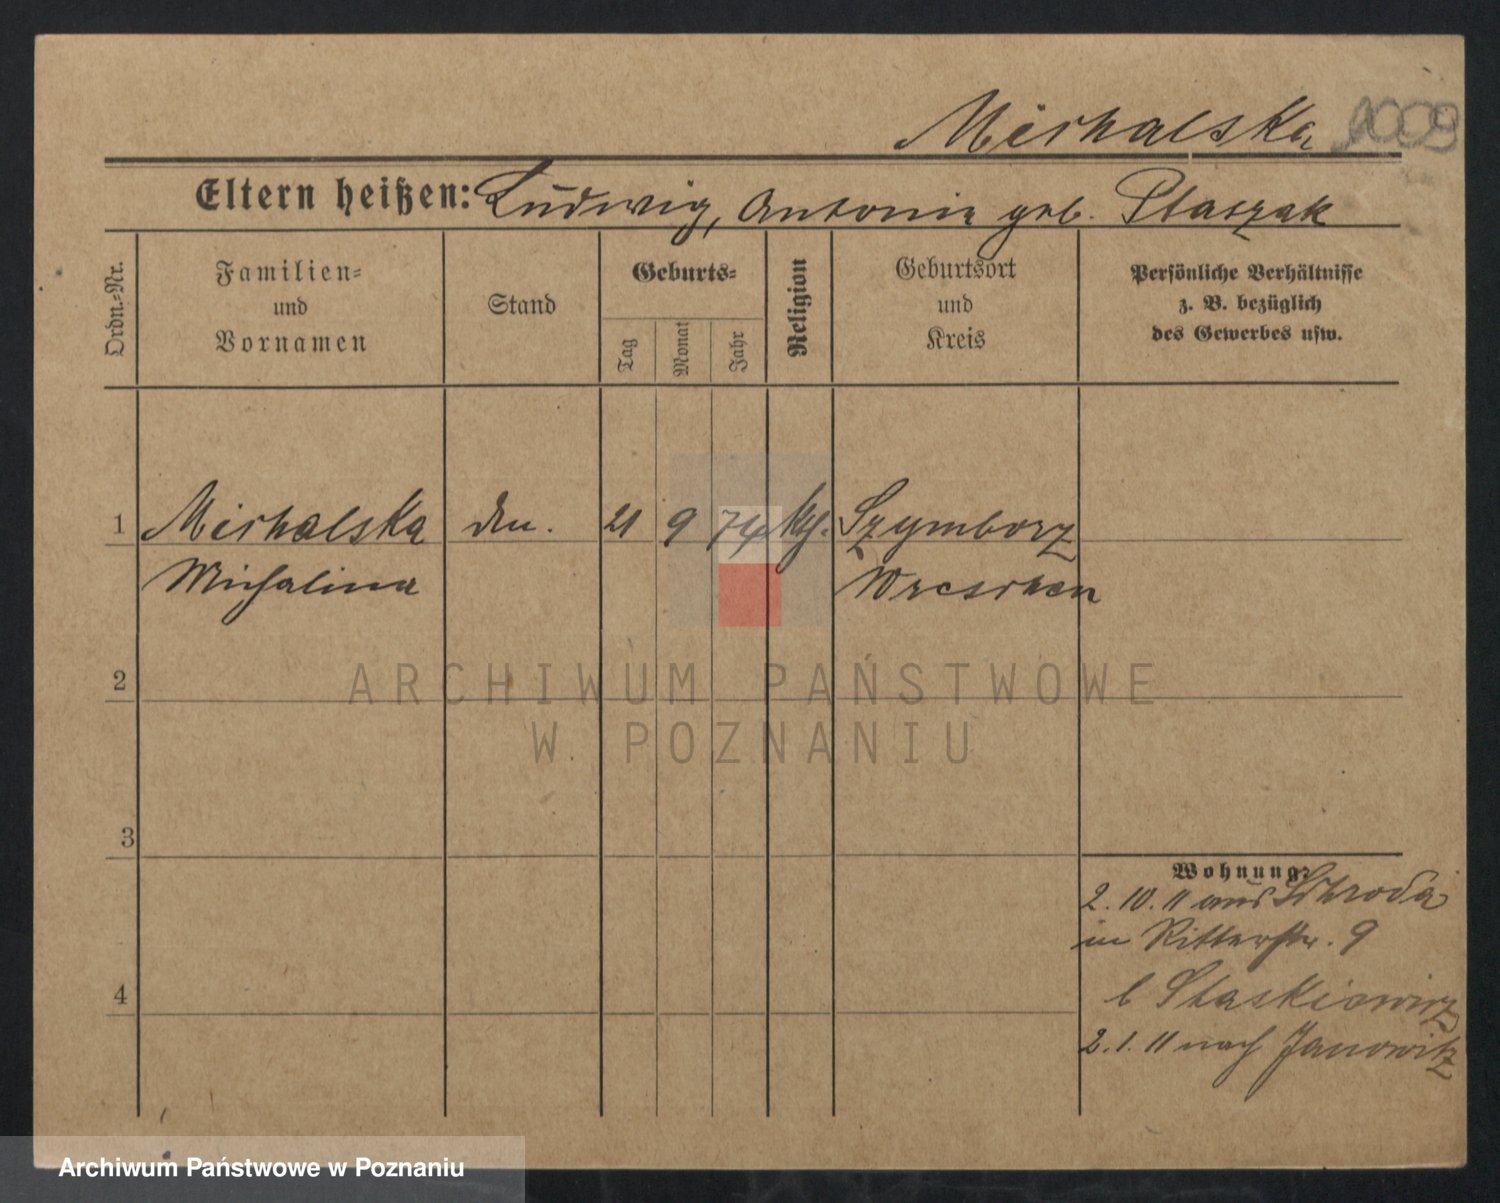 Michalska 1009
Eltern heißen: Ludwig, Antonie geb. Staszak
Ordn.=Nr.
Familien=
und
Vornamen
Stand
Geburts=
Tag
Monat
Jahr
Religion
Geburtsort
und
Kreis
Persönliche Verhältnisse
z. B. bezüglich
des Gewerbes usw.
1 Michalska 21 9 74 kth. Szymborz
Michalina Wreschen
2
3
4
Wohnung:
2. 10. 11 aus Schroda
in Ritterstr. 9
b Staskiewicz
2. 1. 11 nach Janowitz
ARCHIWUM PAŃSTWOWE
W POZNANIU
Archiwum Państwowe w Poznaniu